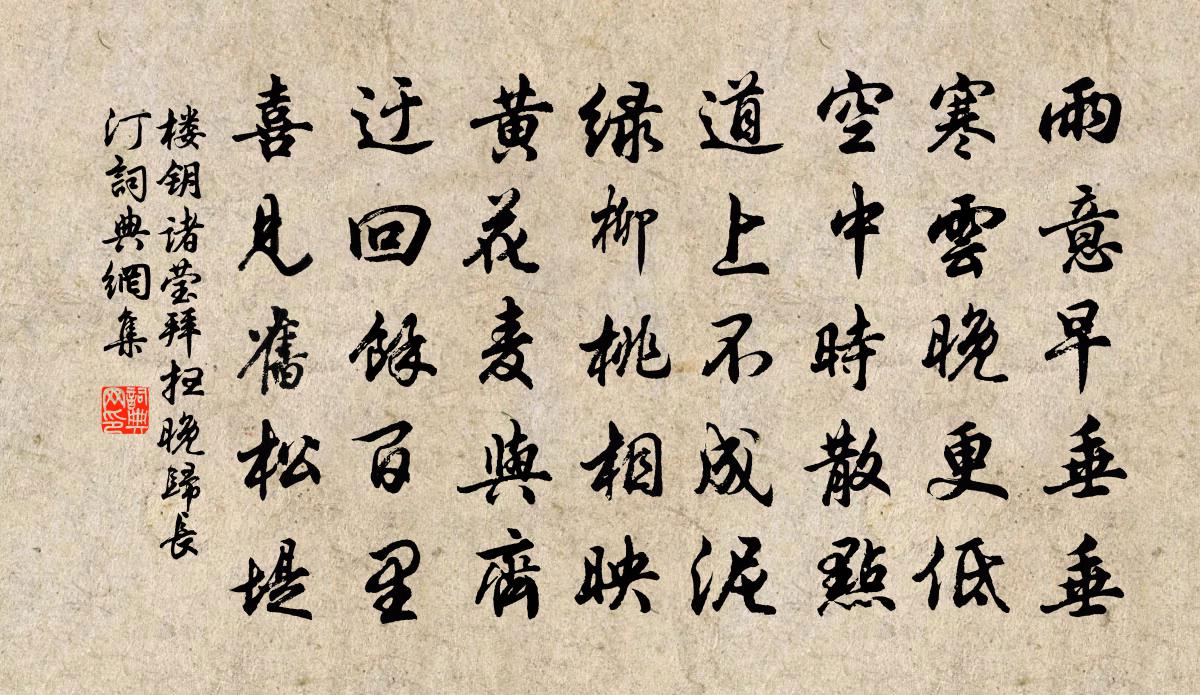 雨意早垂垂
寒雲晚更低
空中時散點
道上不成泥
绿柳桃相映
黄花麦與齊
迂回餘百里
喜見舊松堤
楼钥诸莹拜扫晚歸長
汀詞典網集
詞典网印